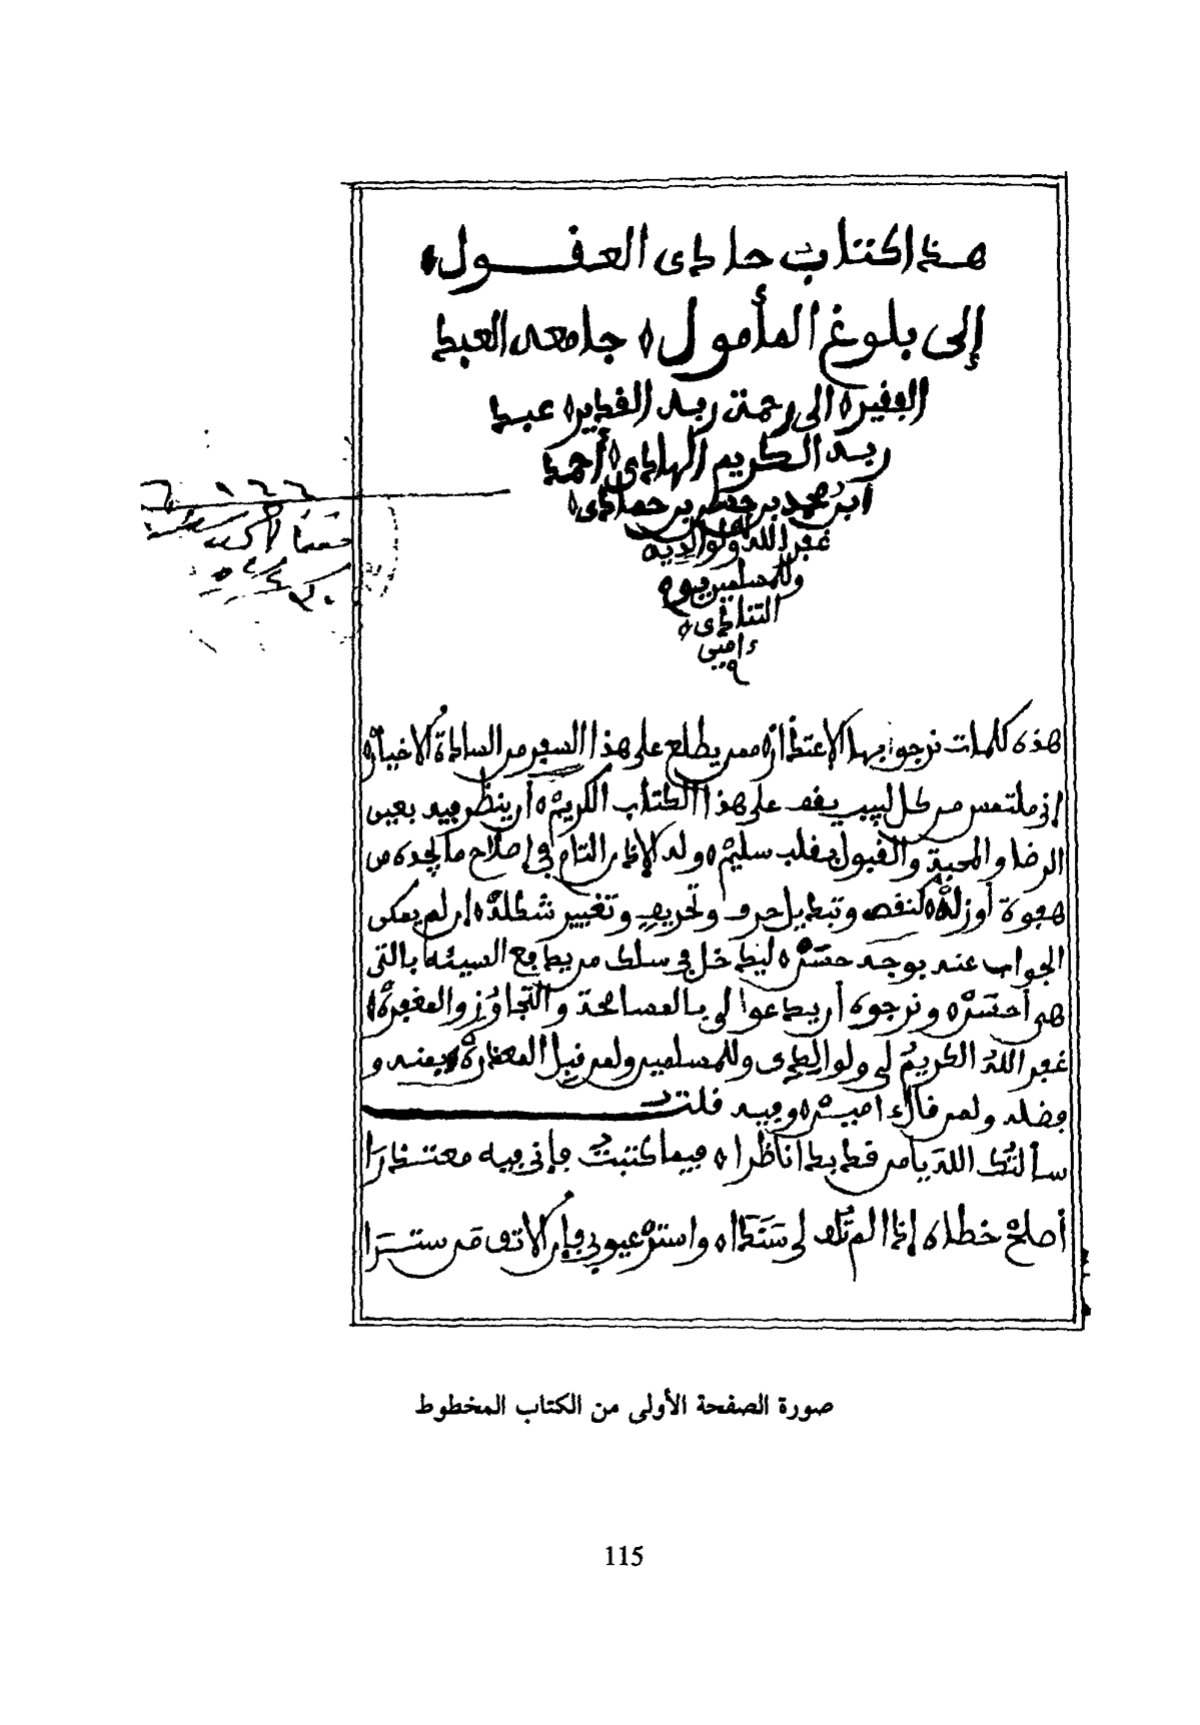 هذا كتاب حادى العقول
إلى بلوغ المأمول جامعه العبد
الفقير الى رحمة ربه القدير عبد
ربه الكريم الهادى أحمد
ابن محمد بن
غفر الله له ولوالديه
وللمسلمين يوم
التنادى
ءامين
هذه كلمات نرجوا بها الاعتذار ممن يطلع على هذا السفر من السادة الاخيار
إني ملتمس من كل لبيب يقف على هذا الكتاب الكريم أن ينظر فيه بعين
الرضا والمحبة والقبول بقلب سليم وله الإذن التام في إصلاح ما يجده من
هفوة أو زلة كنقص وتبديل حرف وتحريف وتغيير شكلة إن لم يمكن
الجواب عنه بوجه حسن ليدخل في سلك من يدفع السيئة بالتى
هى أحسن ونرجوه أن يدعوا لي بالمسامحة والتجاوز والمغفرة
غفر الله الكريم لي ولوالدى وللمسلمين ولمن قبل المعذرة بمنه و
فضله ولمن قال ءامين وفيه قلت
سألتك الله يا من قد بدا ناظرا فيما كتبت فإني فيه معتذرا
أصلح خطاه إذا لم تلف لي سندا واستر عيوبي فإن لا تق من سترا
صورة الصفحة الأولى من الكتاب المخطوط
115